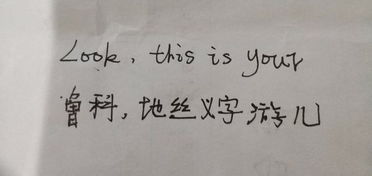 Look, this is your
鲁科，地丝义字游儿